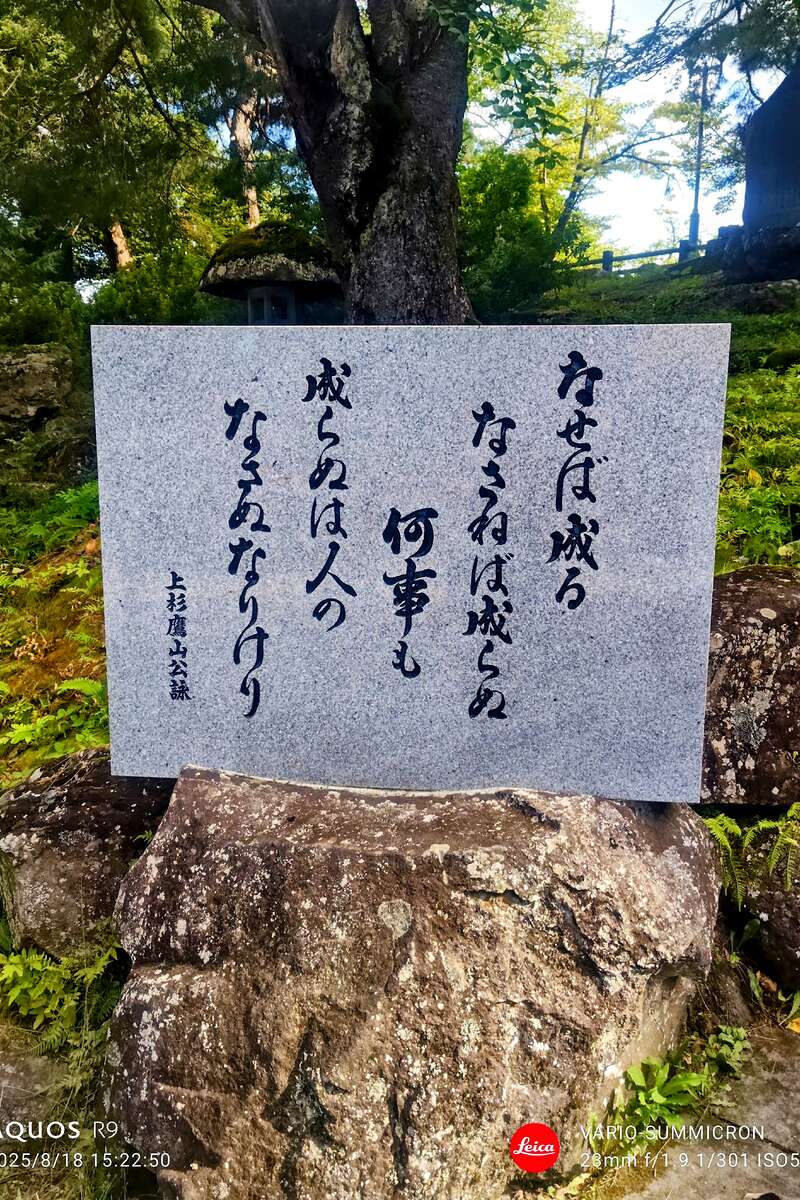 なせば成る
なさねば成らぬ
何事も
成らぬは人の
なさぬなりけり
上杉鷹山公詠
AQUOS R9
2025/8/18 15:22:50
Leica
VARIO-SUMMICRON
23mm f/1.9 1/301 ISO5